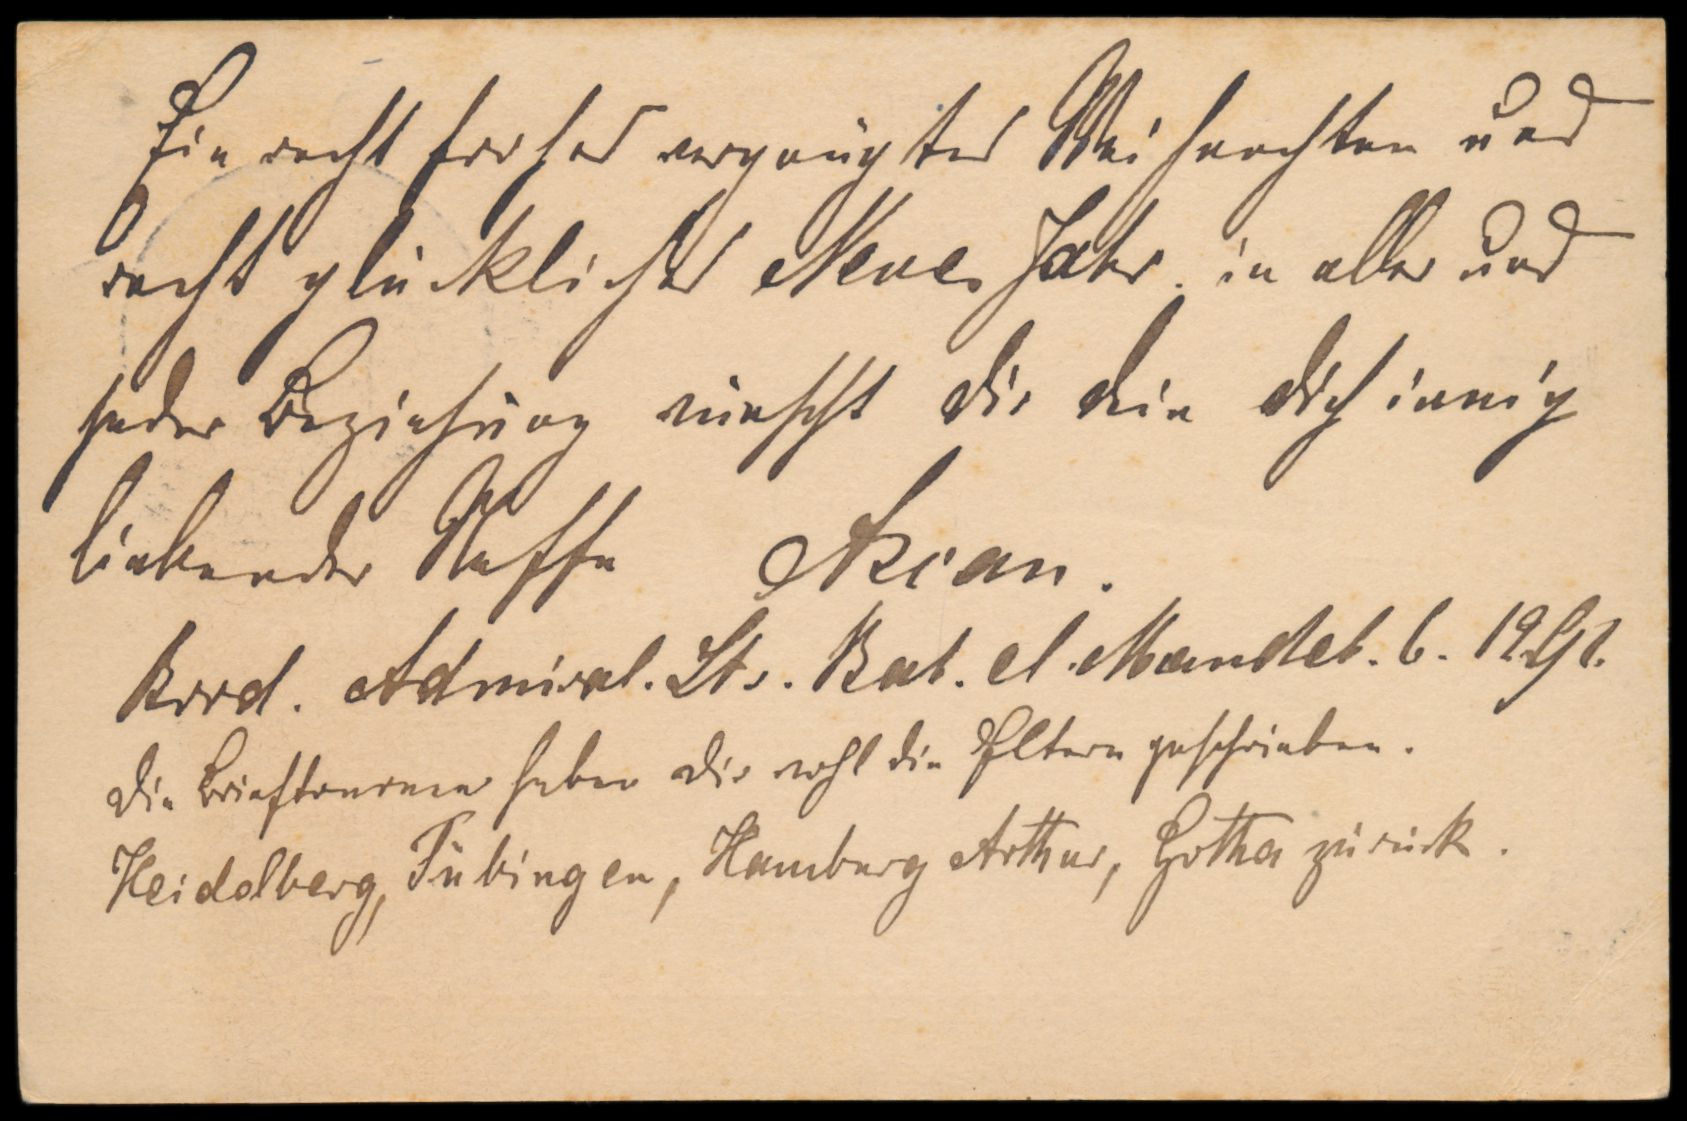 Ein recht frohes vergnügtes Weihnachten und
recht glückliches Neues Jahr. in aller und
jeder Beziehung wünscht dir dein dich innig
liebender Neffe
Bord. Admiral. Str. Bab. el. Mandeb. 6. 12.91.
Die Brieftouren haben dir wohl die Eltern geschrieben.
Heidelberg, Tübingen, Hamburg Arthur, Gotha zurück.